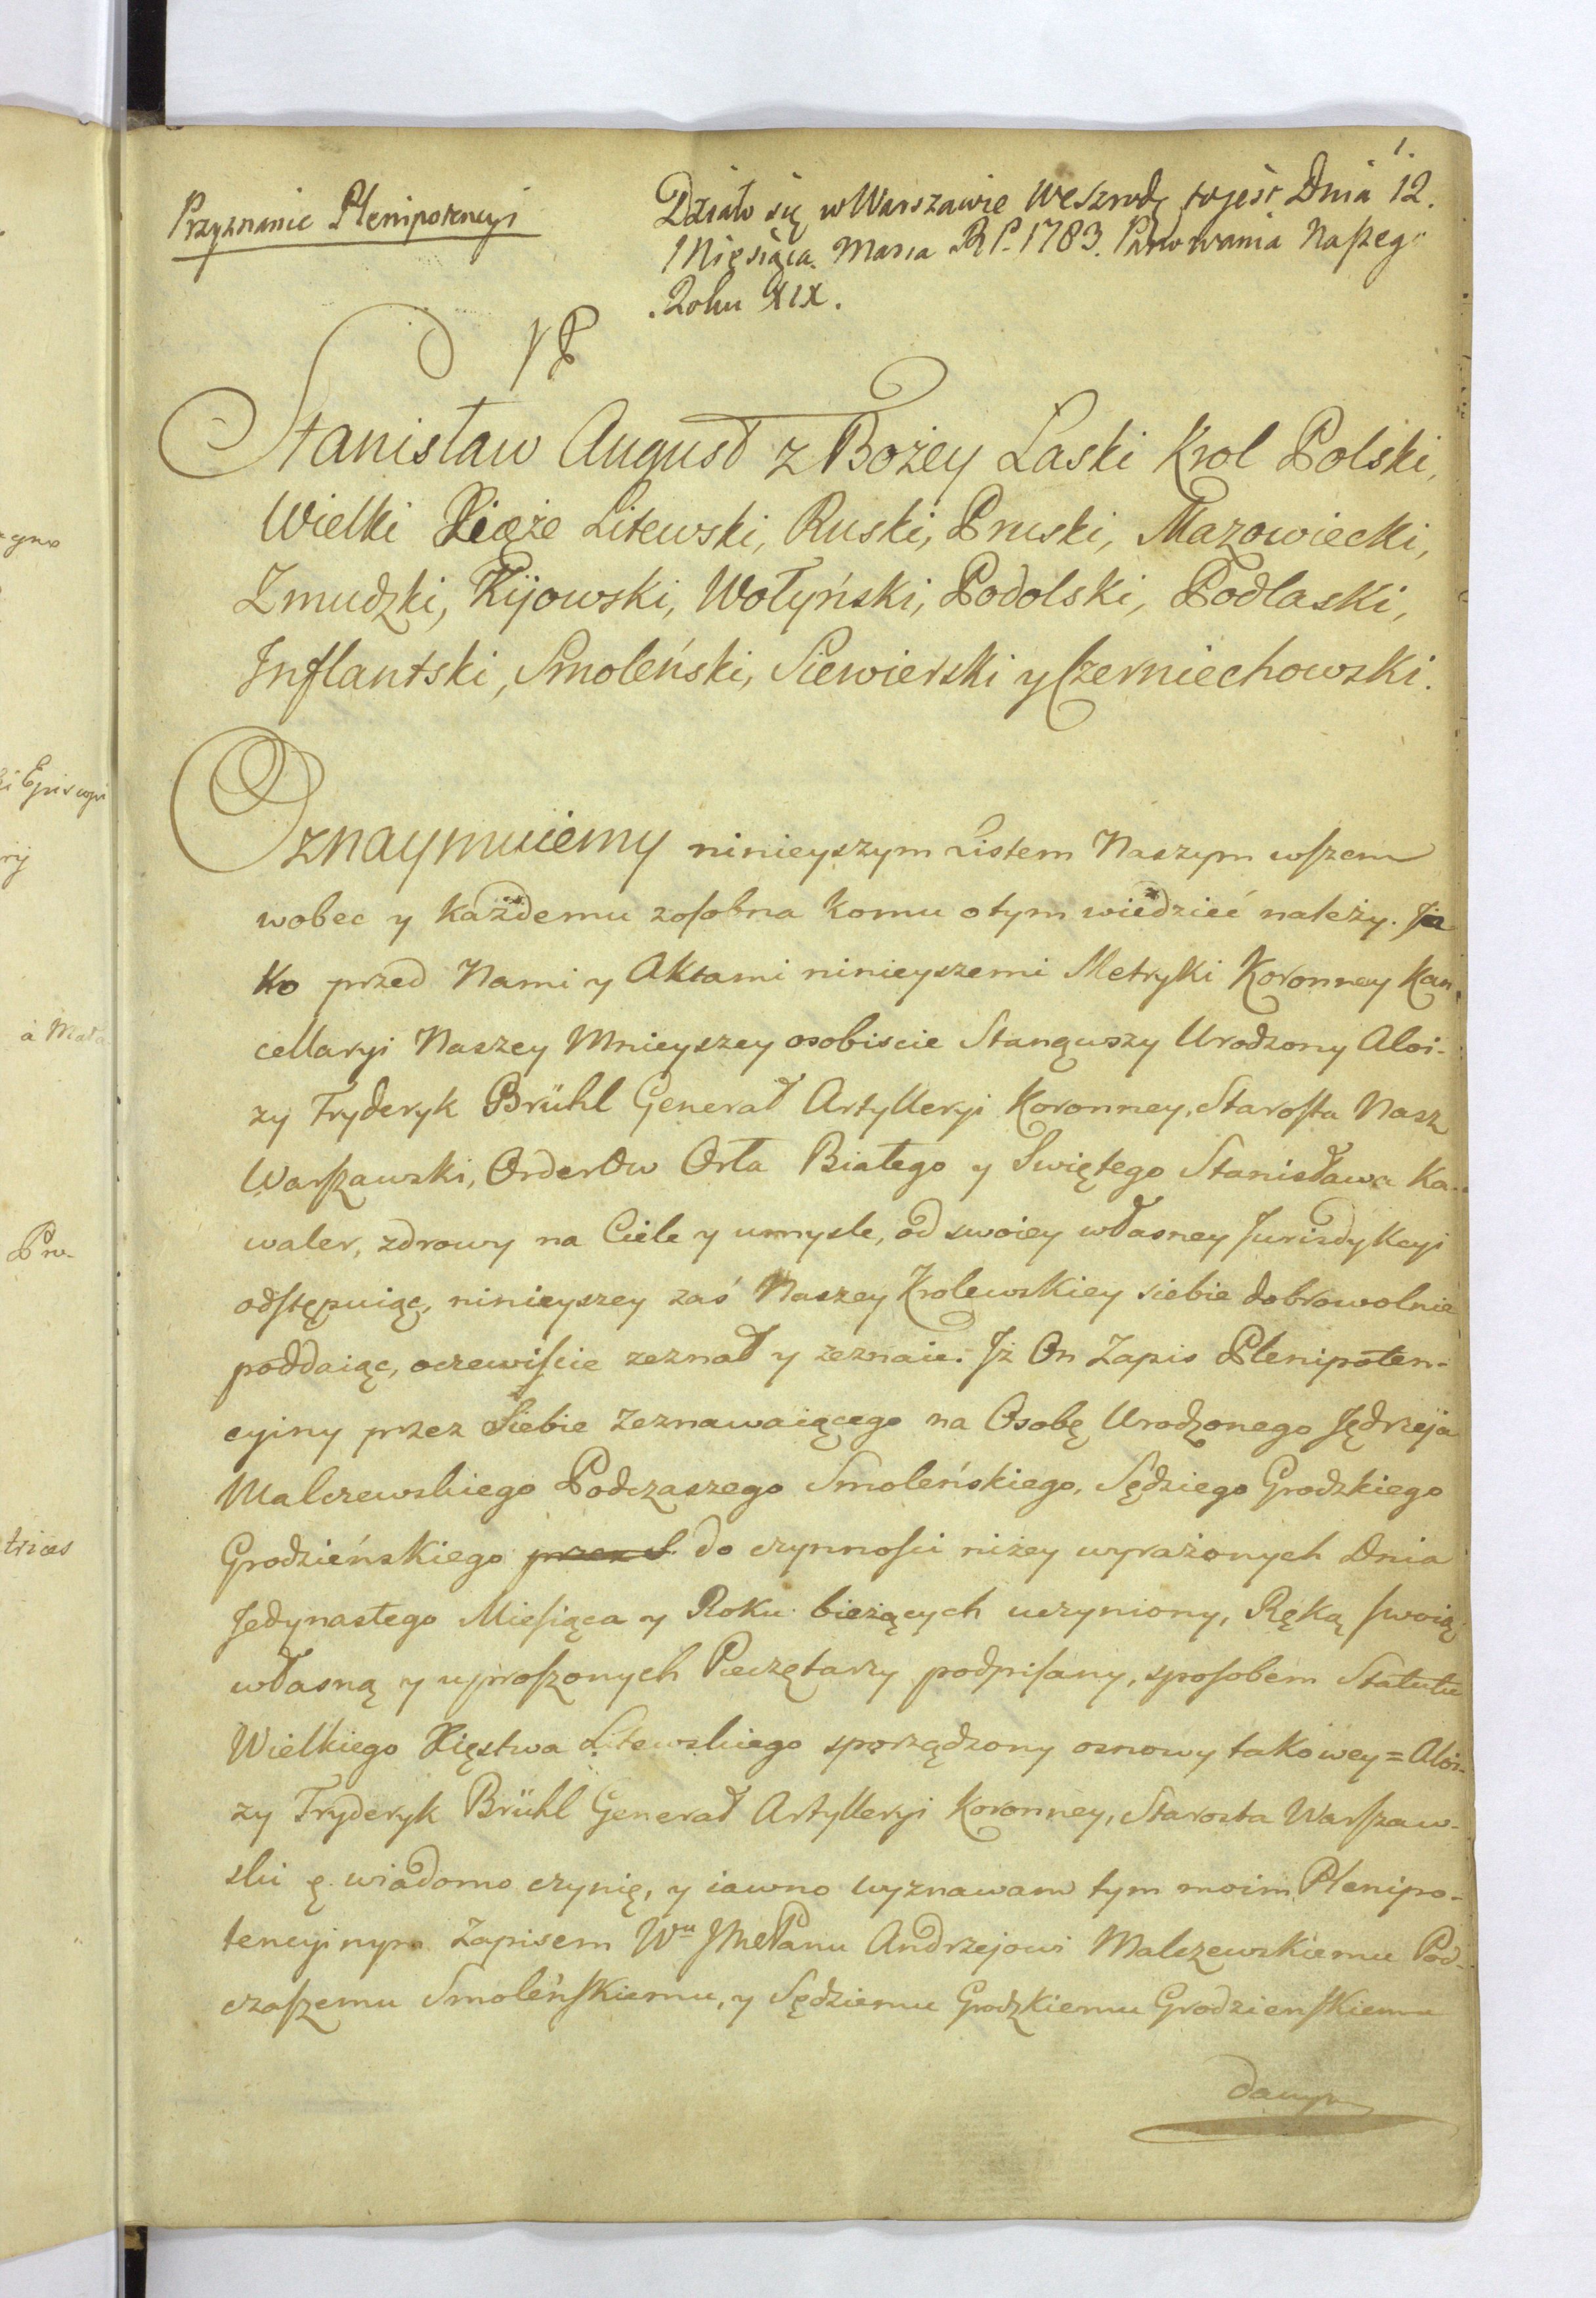 1.
Przyznanie Plenipotencyi
Działo się w Warszawie We Szrodę to jest Dnia 12.
Miesiąca Marca RP. 1783. Panowania Naszego
Roku XIX.
Stanisław August z Bożey Laski Krol Polski,
Wielki Xiąże Litewski, Ruski, Pruski, Mazowiecki,
Zmudzki, Kijowski, Wołyński, Podolski, Podlaski,
Inflantski, Smoleński, Siewierski y Czerniechowski.
Oznaymuiemy ninieyszym Listem Naszym wszem
wobec y każdemu zosobna komu otym wiedzieć należy. Ja
ko przed Nami y Aktami ninieyszemi Metryki Koronney Kan
cellaryi Naszey Mnieyszey osobiscie Stanąwszy Urodzony Aloi-
zy Fryderyk Brühl Generał Artylleryi Koronney, Starosta Nasz
Warszawski, Orderów Orła Białego y Swiętego Stanisława Ka-
waler, zdrowy na Ciele y umysle, od swoiey własney Jurisdykcyi
odstępuiąc, ninieyszey zaś Naszey Krolewskiey siebie dobrowolnie
poddaiąc, oczewiscie zeznał y zeznaie. Jż On Zapis Plenipoten-
cyiny przez Siebie Zeznawaiącego na Osobę Urodzonego Jędrzeja
Malczewskiego Podczaszego Smoleńskiego, Sędziego Grodzkiego
Grodzieńskiego przez S do czynnosci niżey wyrażonych Dnia
Jedynastego Miesiąca y Roku bieżących uczyniony, Ręką swoią
własną y uproszonych Pieczętarzy podpisany, sposobem Statutu
Wielkiego Xięstwa Litewskiego sporządzony osnowy takowey = Aloi-
zy Fryderyk Brühl Generał Artylleryi Koronney, Starosta Warszaw-
ski ę. wiadomo czynię, y iawno wyznawam tym moim Plenipo-
tencyinym Zapisem Wu JMePanu Andrzejowi Malczewskiemu Pod-
czaszemu Smoleńskiemu, y Sędziemu Grodzkiemu Grodzienskiemu
danym